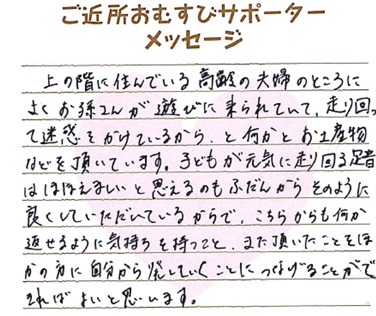 ご近所おむすびサポーター
メッセージ
上の階に住んでいる高齢の夫婦のところに
よくお孫さんが遊びに来られていて、走り回っ
て迷惑をかけているから、と何かとお土産物
などを頂いています。子どもが元気に走り回る足音
はほほえましいと思えるのもふだんからそのように
良くしていただいているからで、こちらからも何か
返せるように気持ちを持つこと、また頂いたことをほ
かの方に自分から発していくことにつなげることがで
きればよいと思います。